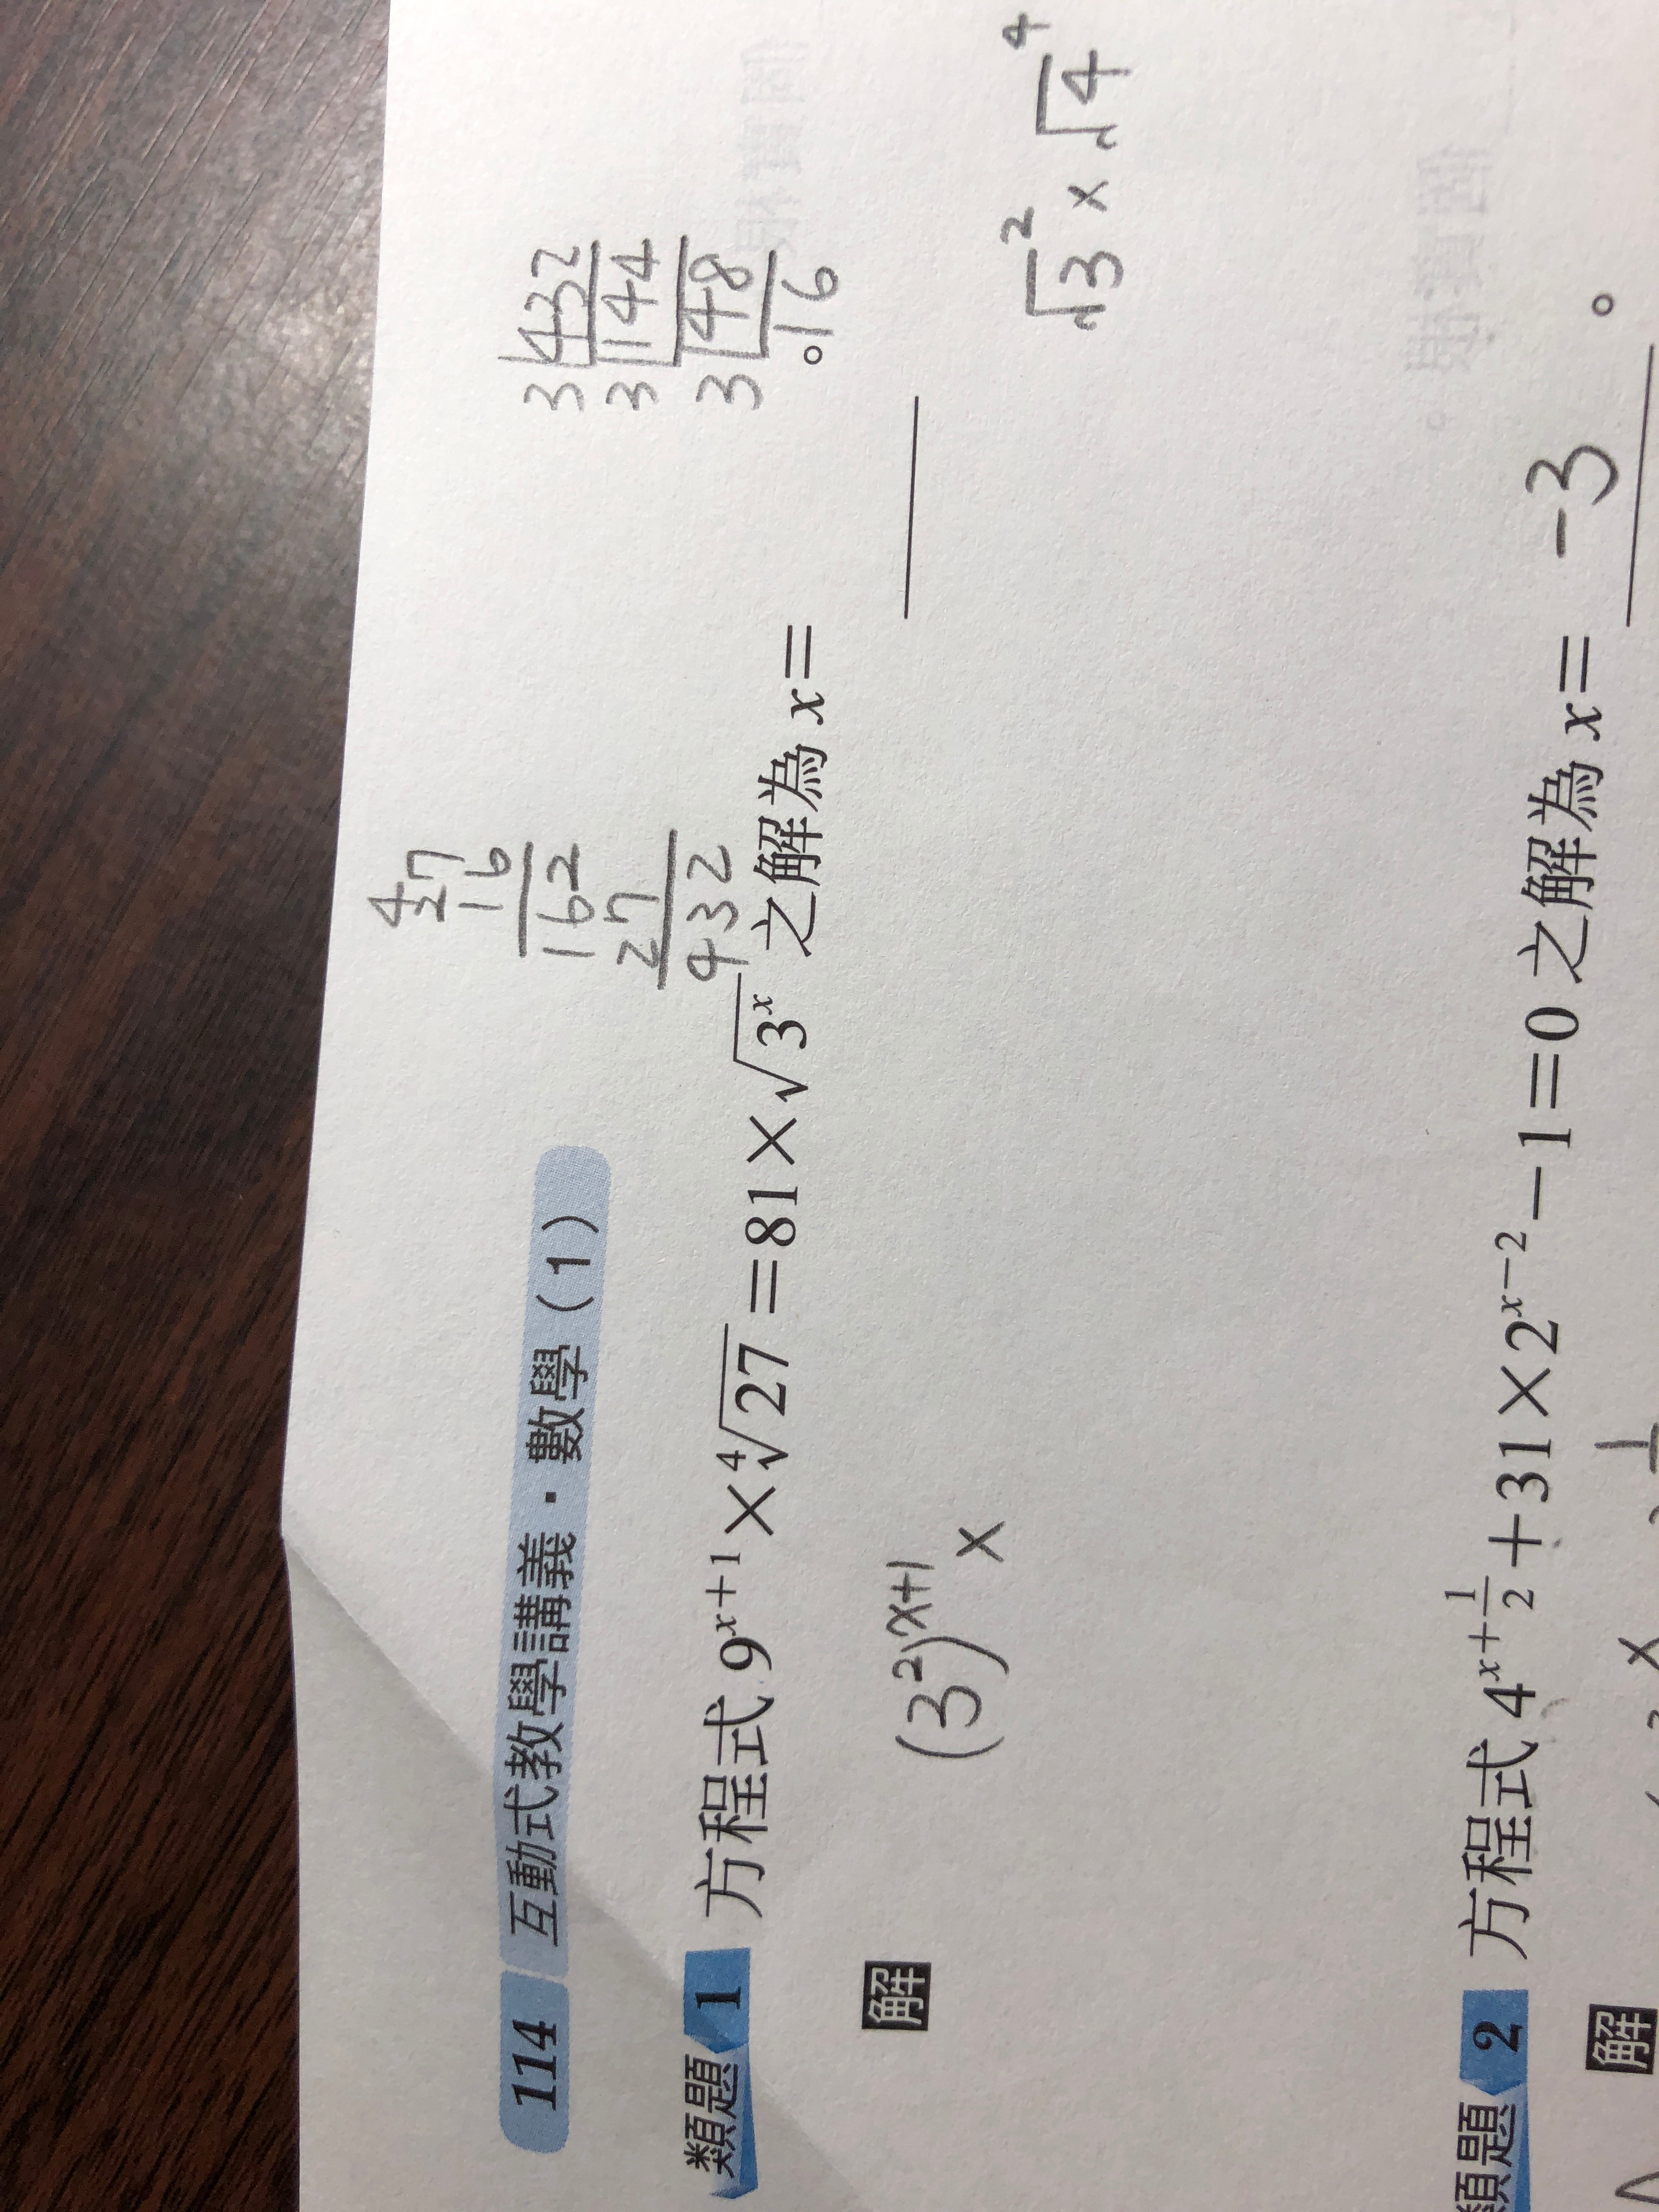 114 互動式教學講義・數學(1)
4
27
16
162
27
432
3 432
3 144
3 48
16
類題 1 方程式 9^{x+1}×⁴√27=81×√3^x 之解為 x=______。
解
(3²)^{x+1} ×
√3² × √4⁴
類題 2 方程式 4^{x+1/2}+31×2^{x-2}-1=0 之解為 x= -3 。
解